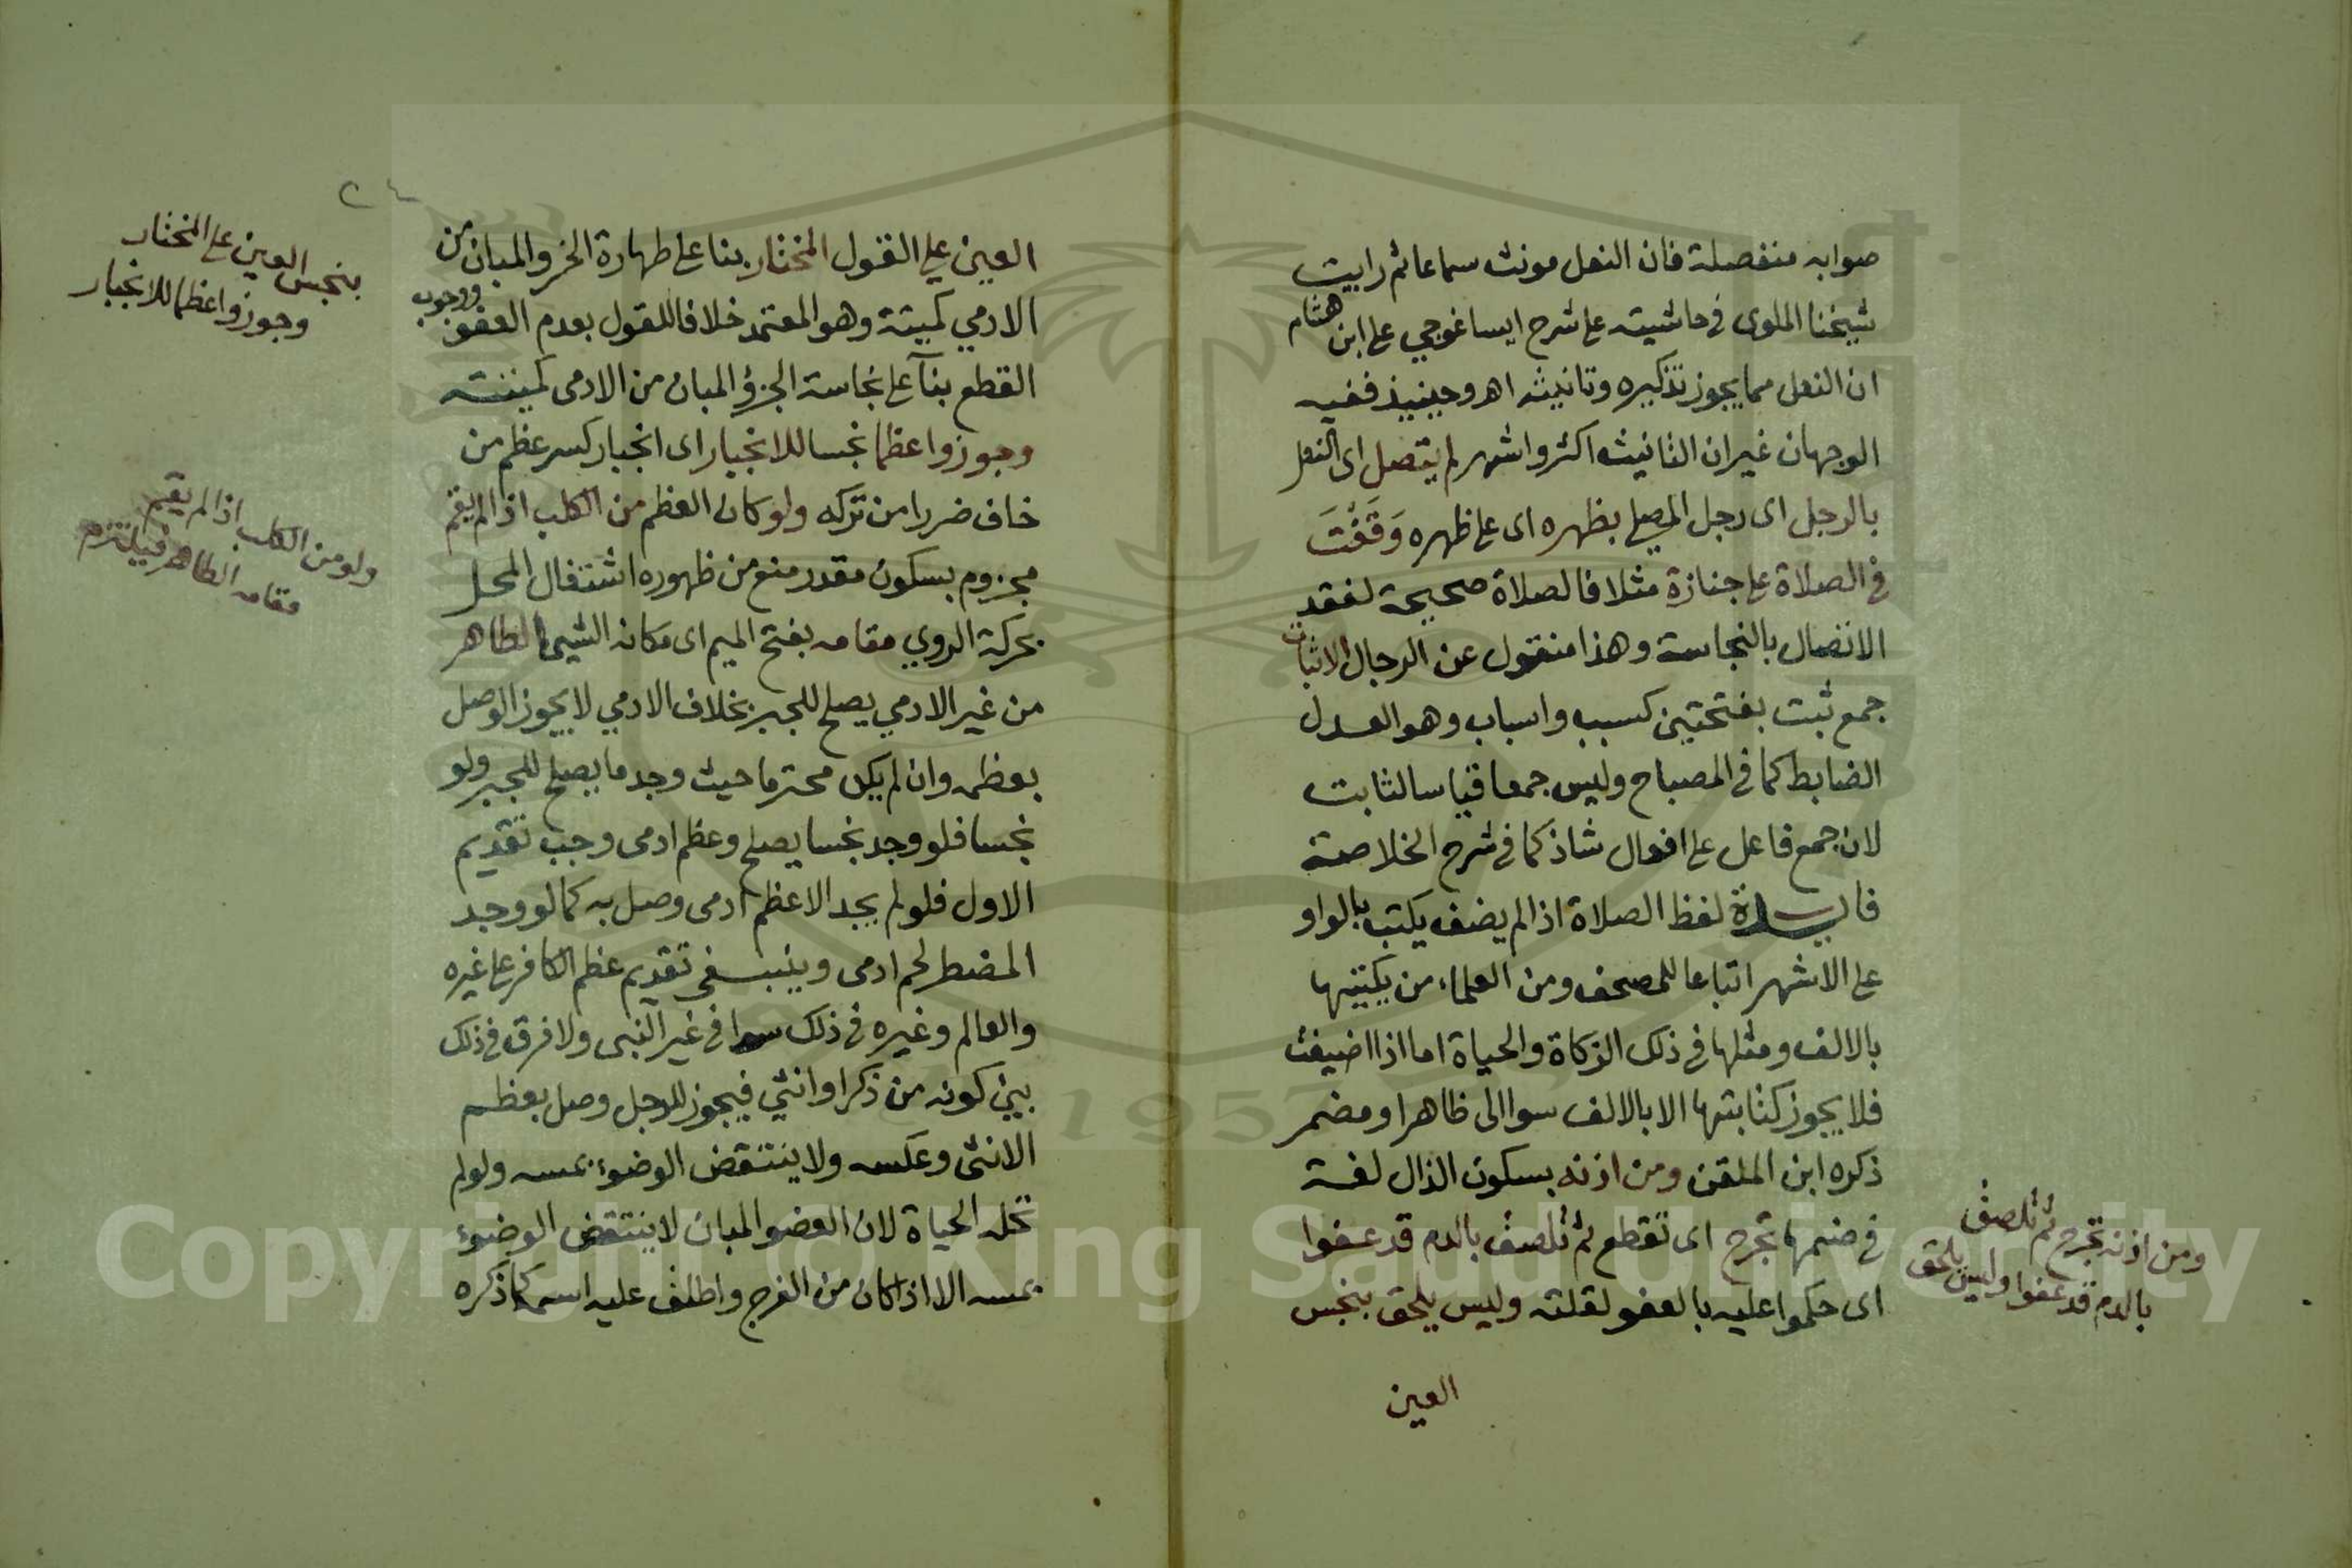 صوابه منفصلة فان النعل مونث سماعا ثم رايت
شيخنا الملوى فى حاشيته على شرح ايساغوجي على ابن هشام
ان النعل مما يجوز تذكيره وتانيثه اهـ وحينيذ ففيه
الوجهان غير ان التانيث اكثر واشهر لم يتصل اى النعل
بالرجل اى رجل المصلي بظهره اى على ظهره وَقَفْتَ
في الصلاة على جنازة مثلا فالصلاة صحيحة لفقد
الاتصال بالنجاسة وهذا منقول عن الرجال الاثبات
جمع ثبت بفتحتين كسبب واسباب وهو العدل
الضابط كما فى المصباح وليس جمعا قياسا لثابت
لان جمع فاعل على افعال شاذ كما فى شرح الخلاصة
لفظ الصلاة اذا لم يضف يكتب بالواو
على الاشهر اتباعا للمصحف ومن العلماء من يكتبها
بالالف ومثلها فى ذلك الزكاة والحياة اما اذا اضيفت
فلا يجوز كتابتها الا بالالف سوا الى ظاهر او مضمر
ذكره ابن الملقن ومن اذنه بسكون الذال لغة
فى ضمها تجرح اى تقطع ثم تلصق بالدم قد عفوا
اى حكموا عليه بالعفو لقلته وليس يلحق بنجس
العين
ومن اذنه تجرح ثم تلصق
بالدم قد عفوا وليس يلحق
٢٤
العين على القول المختار بنا على طهارة الجزو المبان من
الادمي كميتة وهو المعتمد خلافا للقول بعدم العفو ووجوب
القطع بنآ على نجاسة الجزؤ المبان من الادمى كميتته
وجوزوا عظما نجسا للانجبار اى انجبار كسر عظم من
خاف ضررا من تركه ولو كان العظم من الكلب اذا لم يقم
مجزوم بسكون مقدر منع من ظهوره اشتغال المحل
بحركة الروي مقامه بفتح الميم اى مكانه الشيى الطاهر
من غير الادمي يصلح للجبر بخلاف الادمي لا يجوز الوصل
بعظمه وان لم يكن محترما حيث وجد ما يصلح للجبر ولو
نجسا فلو وجد نجسا يصلح وعظم ادمى وجب تقديم
الاول فلو لم يجد الا عظم ادمى وصل به كما لو وجد
المضطر لحم ادمى وينبغى تقديم عظم الكافر على غيره
والعالم وغيره فى ذلك سوا فى غير النبى ولا فرق فى ذلك
بين كونه من ذكر او انثي فيجوز للرجل وصل بعظم
الانثى وعكسه ولا ينتقض الوضوء بمسه ولو لم
تحله الحياة لان العضو المبان لا ينتقض الوضوء
بمسه الا اذا كان من الفرج واطلق عليه اسمه كما ذكره
بنجس العين على المختار
وجوزوا عظما للانجبار
ولو من الكلب اذا لم يقم
مقامه الطاهر فيلتزم
Copyright © King Saud University
1957